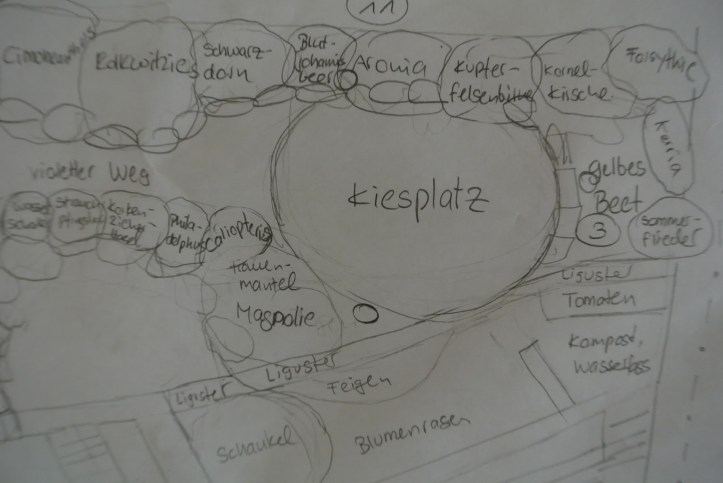 11
Schwarz-
dorn
Blut-
johannis
beere
Aronia
Kupfer-
felsenbirne
Kornel-
kirsche
Forsythie
Kerria
violetter Weg
Kiesplatz
gelbes
Beet
3
Sommer-
flieder
Korken-
zieher
hasel
Phila-
delphus
Cariopteris
Frauen-
mantel
Magnolie
Liguster
Tomaten
Kompost,
Wasserfass
Liguster
Liguster
Feigen
Schaukel
Blumenrasen